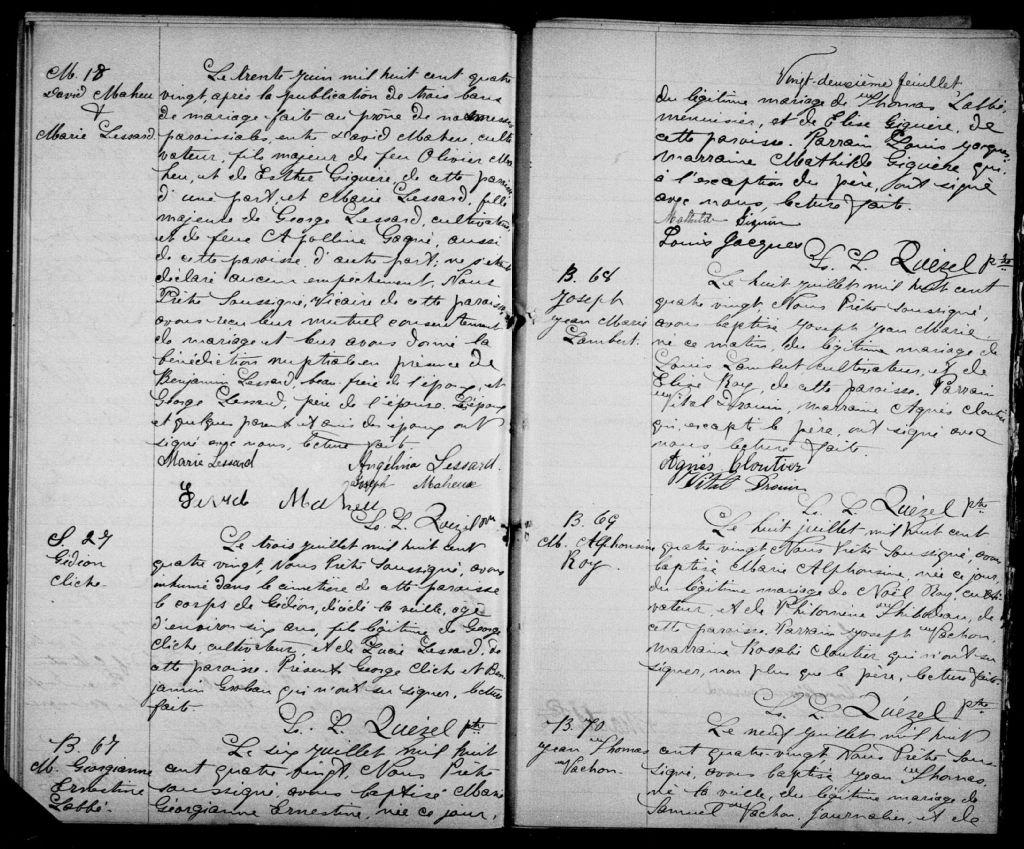 M. 18
David Maheu
&
Marie Lessard
Le trente juin mil huit cent quatre
vingt, après la publication de trois bans
de mariage faite au prône de nos messes
paroissiales, entre David Maheu, culti
vateur, fils majeur de feu Olivier Ma
heu, et de Esther Giguère, de cette paroisse
d'une part, et Marie Lessard, fille
majeure de George Lessard cultivateur
et de feue Apolline Gagné, aussi
de cette paroisse d'autre part; ne s'étant
déclaré aucun empêchement, Nous
Prêtre soussigné, Vicaire de cette paroisse
avons reçu leur mutuel consentement
de mariage et leur avons donné la
bénédiction nuptiale en présence de
Benjamin Lessard, beau-frère de l'époux, et
George Lessard, père de l'épouse. L'époux
et quelques parents et amis des époux ont
signé avec nous, lecture faite.
Marie Lessard Angélina Lessard.
Joseph Maheux
David Maheu
L. L. Quézel ptre
S. 27
Gédéon
Cliche
Le trois juillet mil huit cent
quatre vingt, Nous Prêtre soussigné, avons
inhumé dans le cimetière de cette paroisse
le corps de Gédéon, décédé la veille, agé
d'environ six ans, fils légitime de George
Cliche, cultivateur, et de Lucie Lessard, de
cette paroisse. Présents George Cliche et Ben
jamin Groban qui n'ont su signer, lecture
faite.
L. L. Quézel ptre
B. 67
M. Georgianne
Ernestine
Labbé
Le six juillet mil huit
cent quatre vingt, Nous Prêtre
soussigné, avons baptisé Marie
Géorgianne Ernestine, née ce jour,
Vingt-deuxième feuillet
du légitime mariage de Thomas Labbé,
menuisier, et de Elise Giguère, de
cette paroisse. Parrain Louis Jacques
marraine Mathilde Giguère, qui
à l'exception du père, ont signé
avec nous, lecture faite.
Mathilda
Louis Jacques
L. L. Quézel ptre
B. 68
Joseph
Jean Marie
Lambert.
Le huit juillet mil huit cent
quatre vingt Nous Prêtre soussigné,
avons baptisé Joseph Jean Marie
né ce matin, du légitime mariage de
Louis Lambert cultivateur, et de
Elise Roy, de cette paroisse. Parrain
Vital Drouin, marraine Agnès Cloutier
qui, excepté le père, ont signé avec
nous, lecture faite.
Agnès Cloutier
Vital Drouin
L. L. Quézel ptre
B. 69
M. Alphonsine
Roy.
Le huit juillet mil huit cent
quatre vingt Nous Prêtre soussigné, avons
baptisé Marie Alphonsine, née ce jour,
du légitime mariage de Noël Roy, culti
vateur, et de Philomène Thibodeau, de
cette paroisse. Parrain Joseph Vachon,
marraine Rosalie Cloutier qui n'ont su
signer, non plus que le père, lecture faite.
L. L. Quézel ptre
B. 70
Jean Thomas
Vachon.
Le neuf juillet mil huit
cent quatre-vingt Nous Prêtre sous-
signé, avons baptisé Jean Thomas,
né la veille, du légitime mariage de
Samuel Vachon, journalier, et de